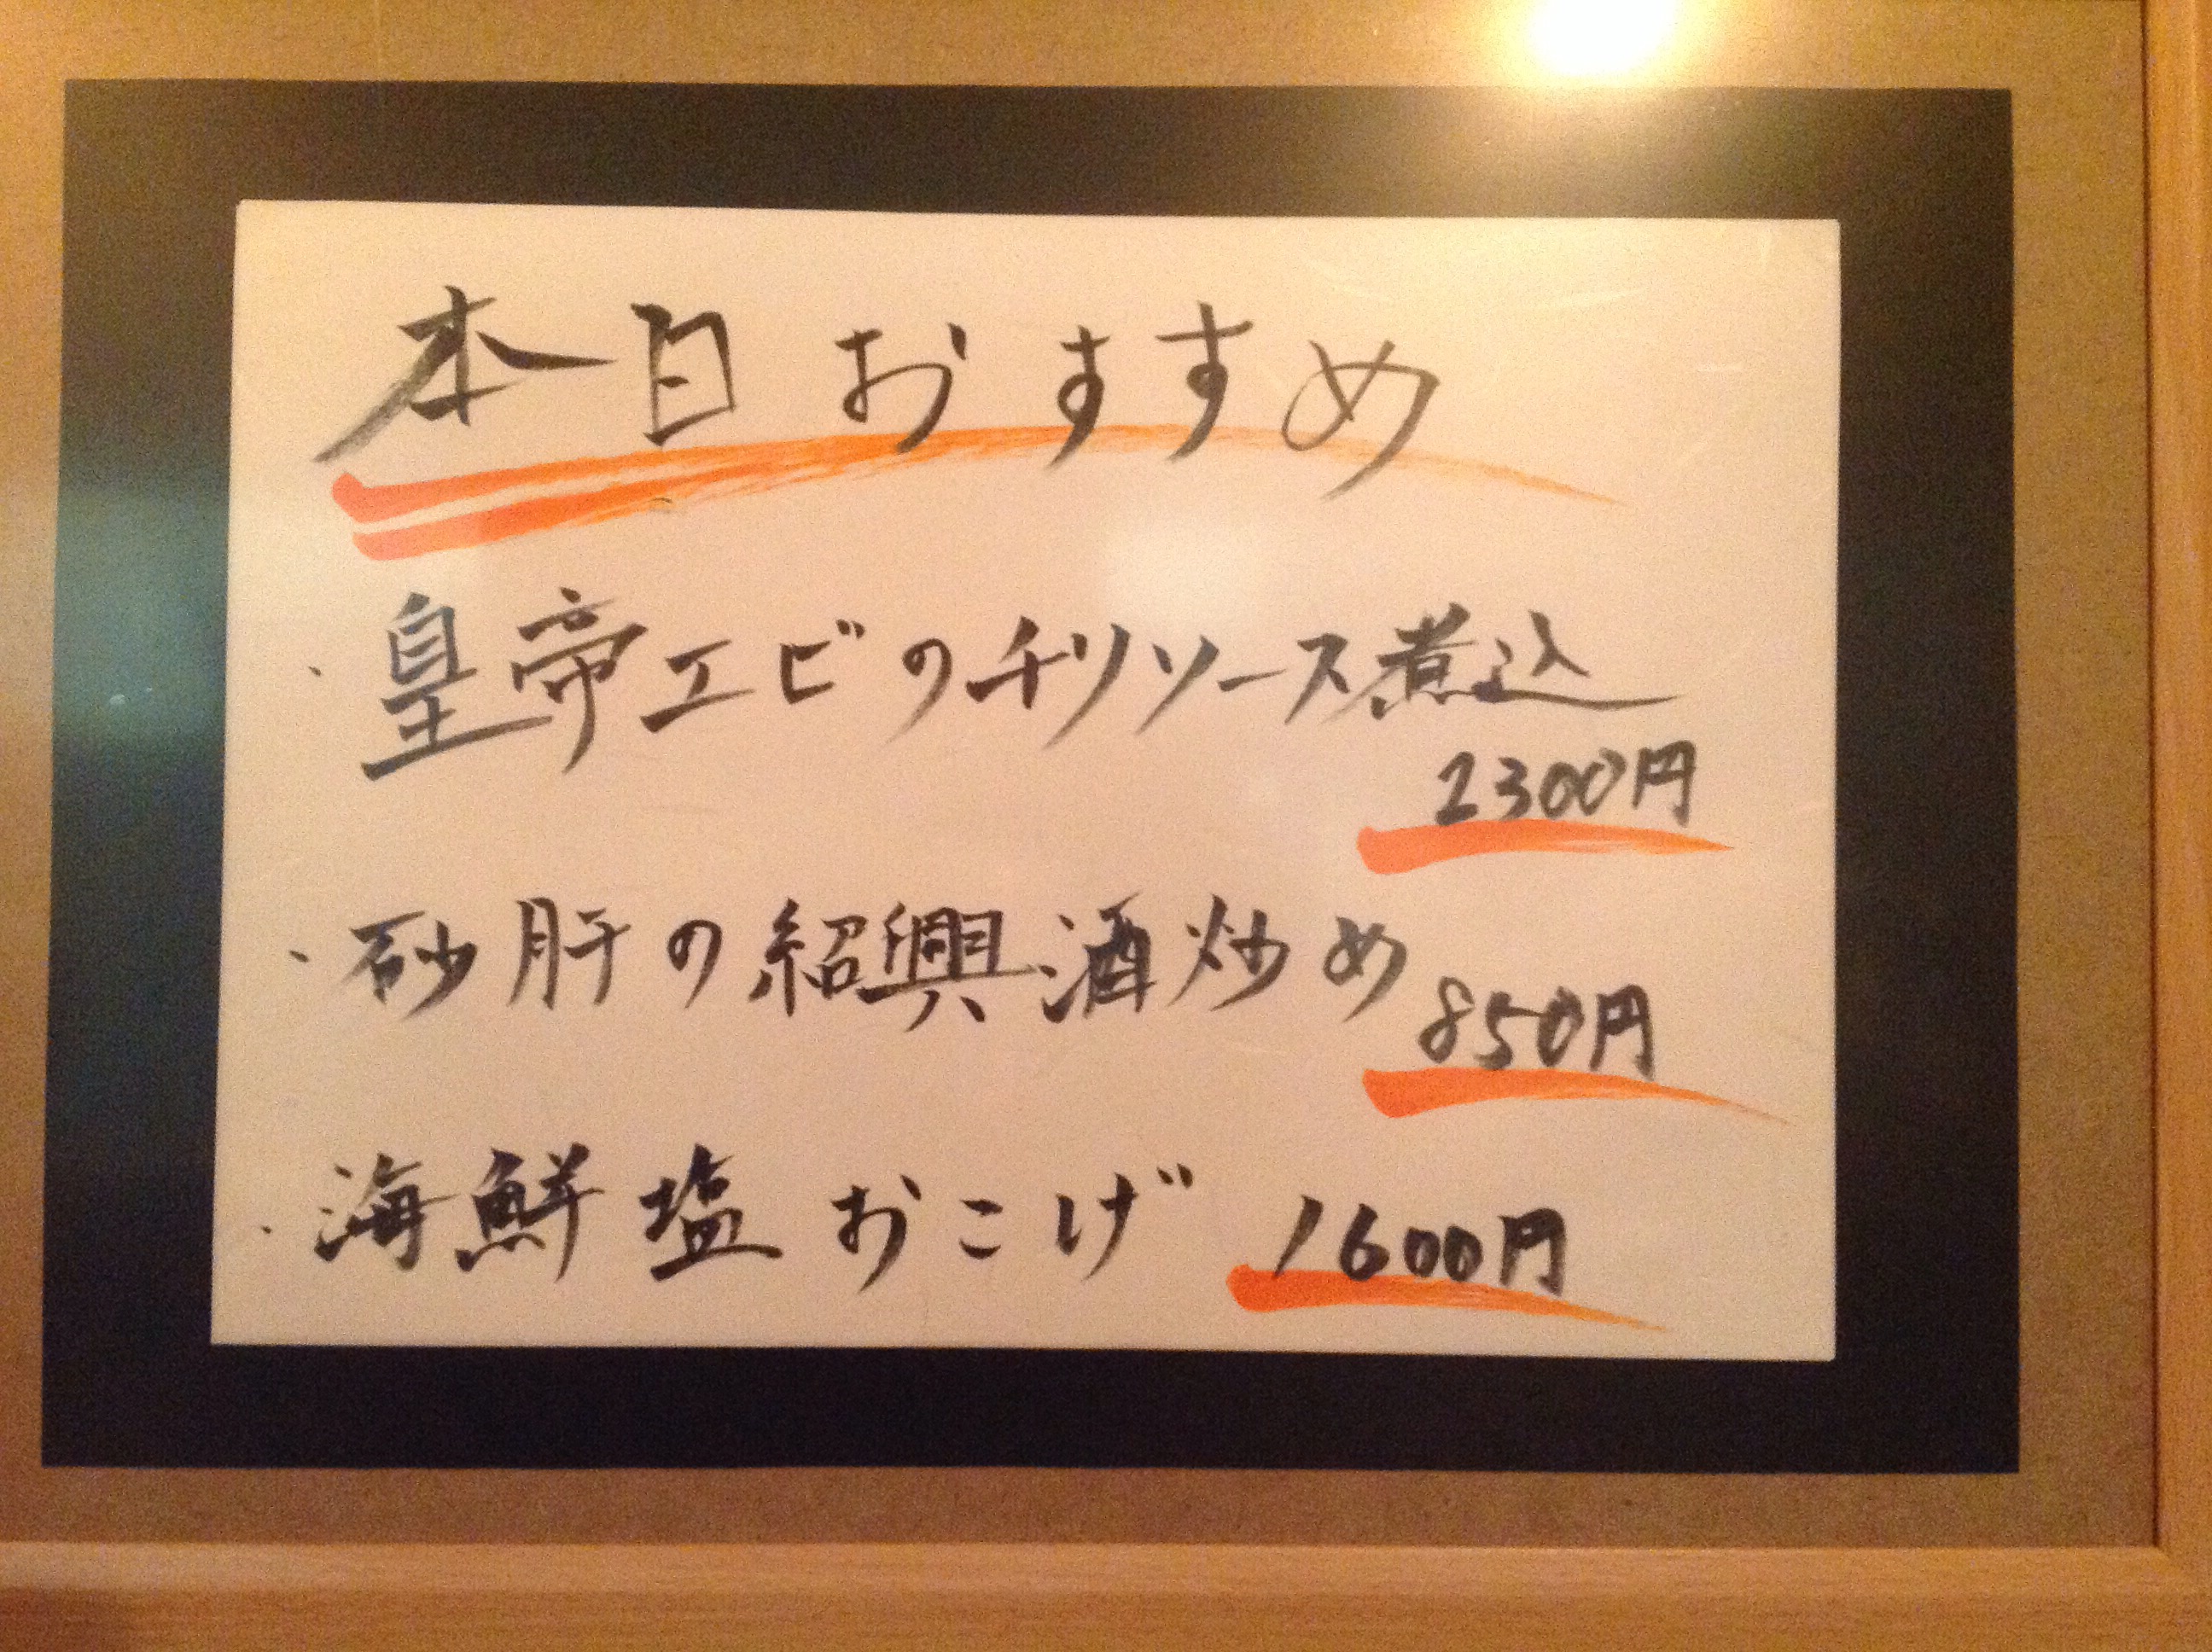 本日おすすめ
・皇帝エビのチリソース煮込
2300円
・砂肝の紹興酒炒め
850円
・海鮮塩おこげ 1600円